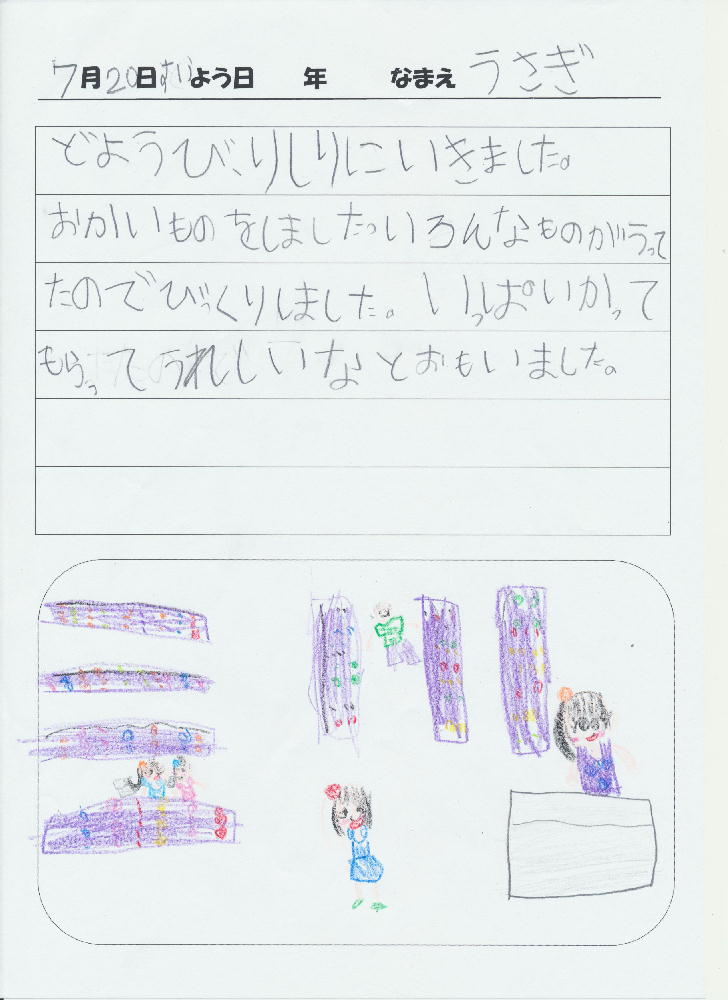 7月20日すいよう日 年 なまえ うさぎ
どようび、りしりにいきました。
おかいものをしました。いろんなものがうって
たのでびっくりしました。いっぱいかって
もらってうれしいなとおもいました。